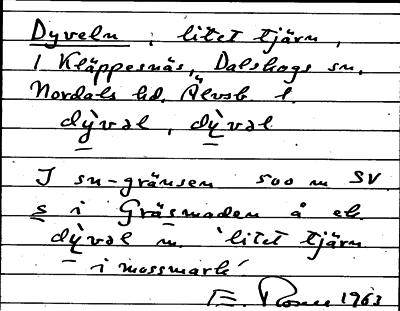 Dyveln : litet tjärn,
i Kläppesnäs, Dalskogs sn,
Nordals hd. Älvsb. l.
dỳvəl, dỳvəl
I sn-gränsen 500 m SV
s i Gräsmaden å ek.
dỳvəl m. 'litet tjärn
i mossmark'
E. 1963